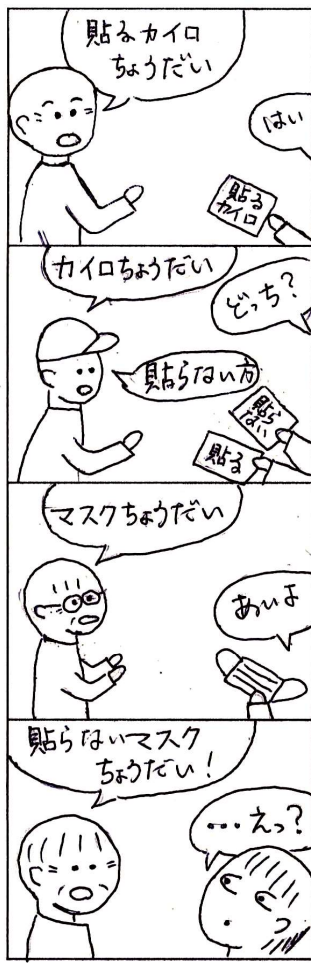 貼るカイロ
ちょうだい
はい
貼る
カイロ
カイロちょうだい
どっち?
貼らない方
貼ら
ない
貼る
マスクちょうだい
あいよ
貼らないマスク
ちょうだい!
…えっ?